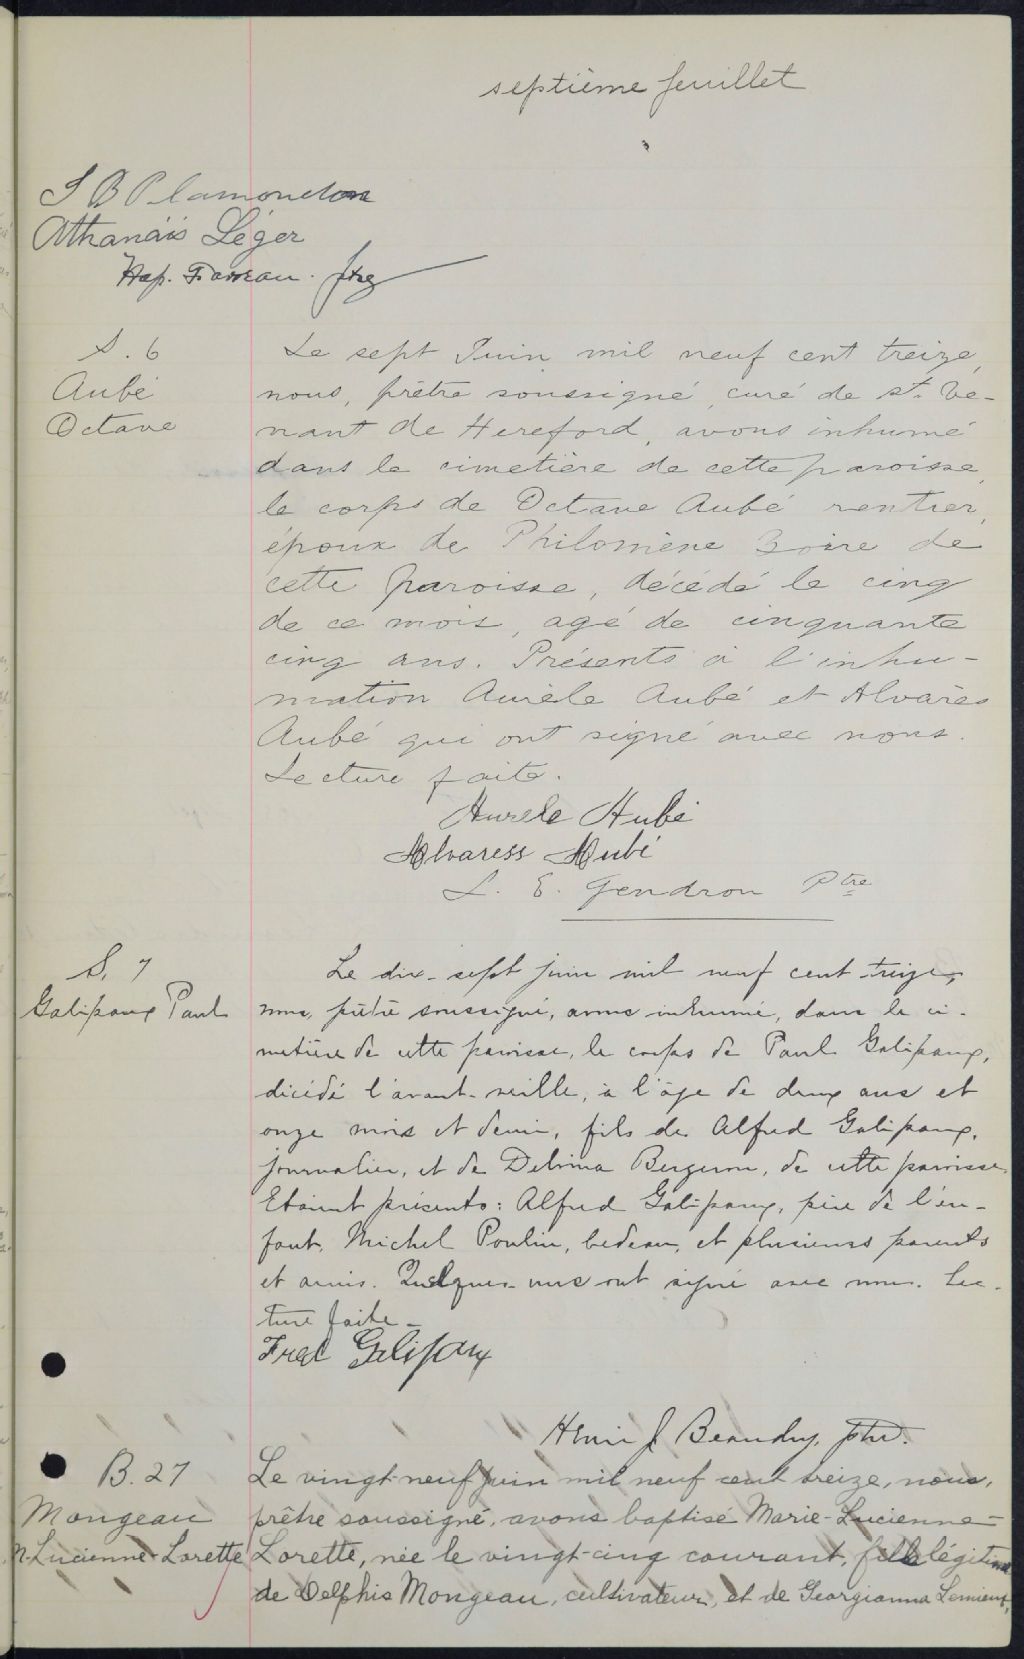 septième feuillet
J B Plamondon
Athanäis Léger
Nap. Favreau. ptre
S. 6
Aubé
Octave
Le sept Juin mil neuf cent treize,
nous, prêtre soussigné, curé de St. Ve-
nant de Hereford, avons inhumé
dans le cimetière de cette paroisse,
le corps de Octave Aubé rentier,
époux de Philomène Boire de
cette paroisse, décédé le cinq
de ce mois, agé de cinquante
cinq ans. Présents à l'inhu-
mation Aurèle Aubé et Alvarès
Aubé qui ont signé avec nous.
Lecture faite.
Aurele Aubé
Alvaress Aubé
L. E. Gendron Ptre
S. 7
Galipaux Paul
Le dix-sept juin mil neuf cent treize,
nous, prêtre soussigné, avons inhumé, dans le ci-
metière de cette paroisse, le corps de Paul Galipaux,
décédé l'avant-veille, à l'âge de deux ans et
onze mois et demi, fils de Alfred Galipaux,
journalier, et de Delvina Bergeron, de cette paroisse.
Etaient présents: Alfred Galipaux, père de l'en-
fant, Michel Poulin, bedeau, et plusieurs parents
et amis. Quelques-uns ont signé avec nous. Lec-
ture faite-
Fred Galipaux
Henri J Beaudry, ptre.
B. 27
Mongeau
M-Lucienne-Lorette
Le vingt-neuf juin mil neuf cent treize, nous,
prêtre soussigné, avons baptisé Marie-Lucienne-
Lorette, née le vingt-cinq courant, fille légitime
de Delphis Mongeau, cultivateur, et de Georgianna Lemieux,